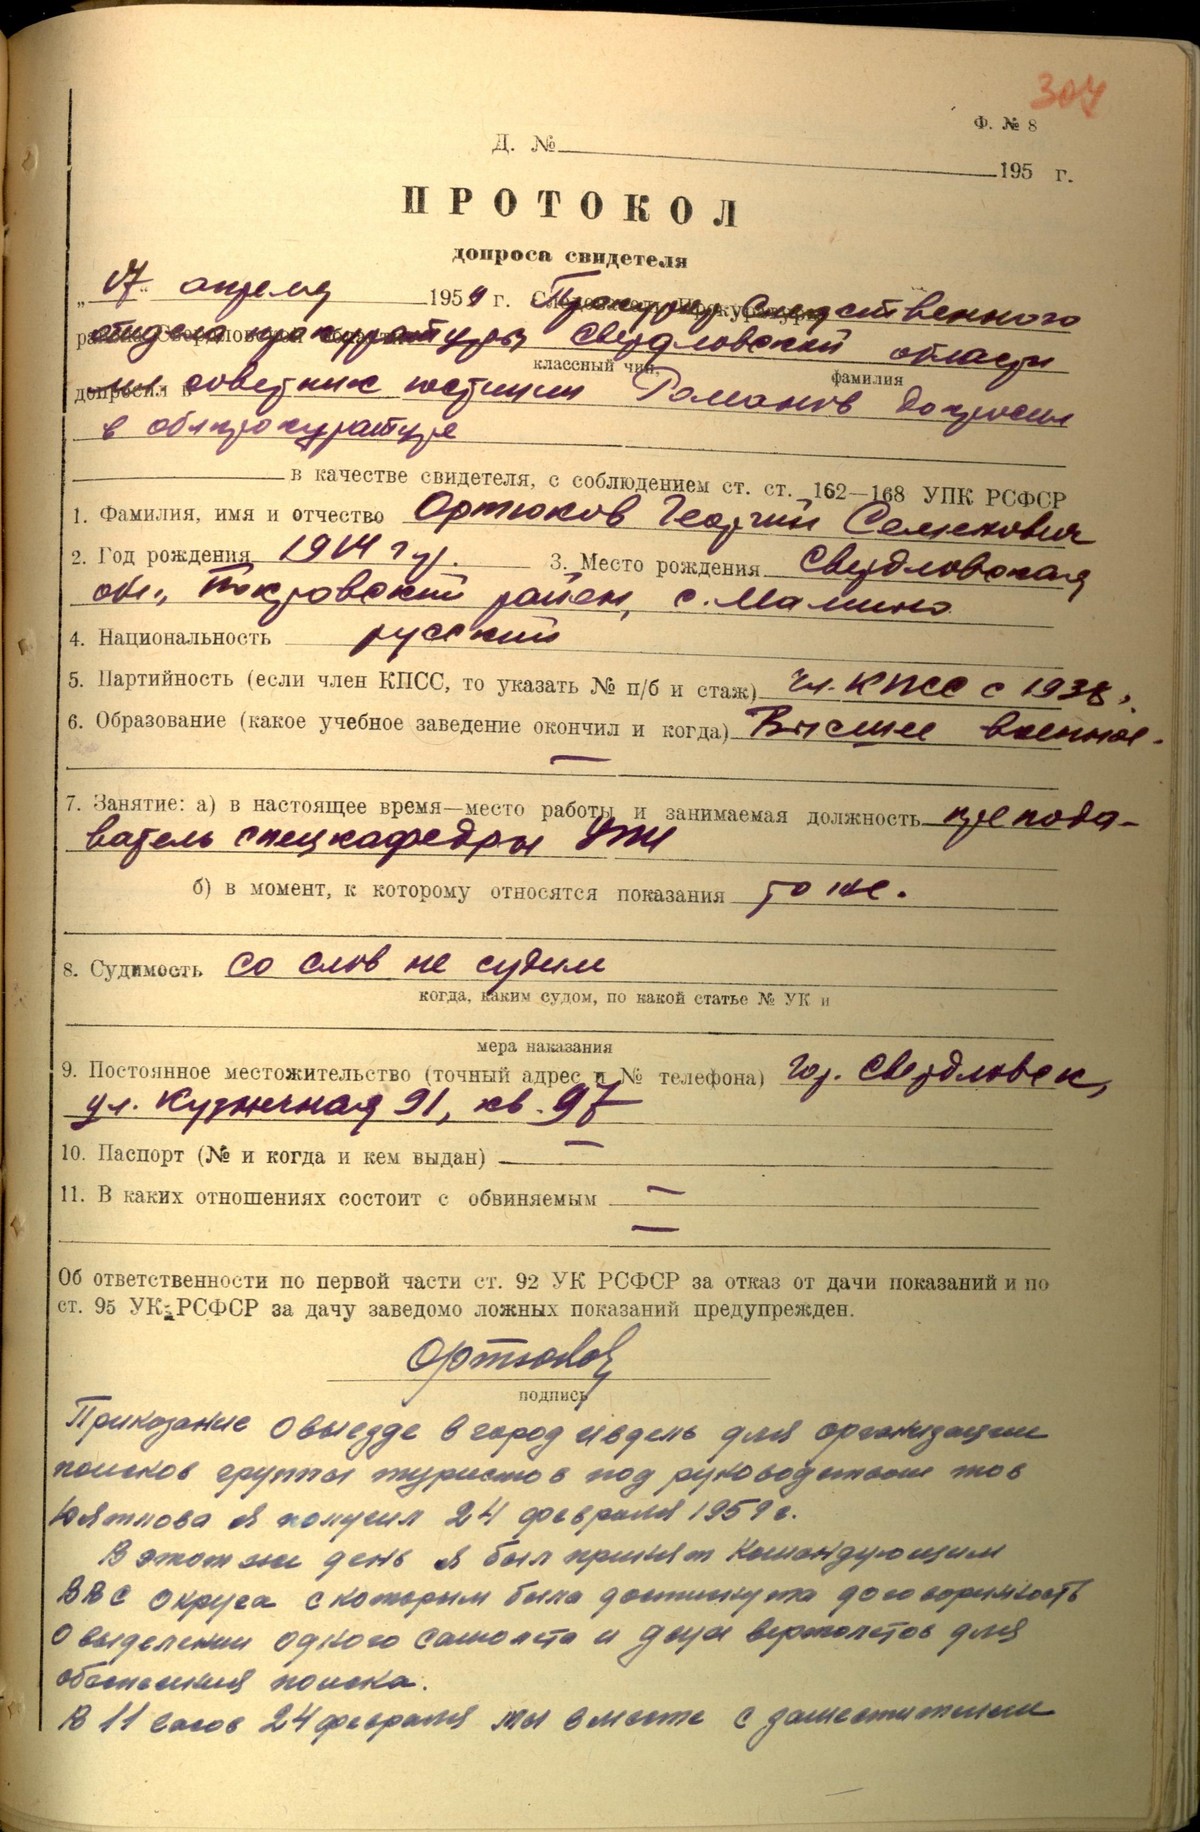 307
Ф. № 8
Д. №
195 г.
ПРОТОКОЛ
допроса свидетеля
„ 17 “ апреля 1959 г. Прокурор Следственного
отдела прокуратуры Свердловской области
классный чин, фамилия
допросил советник юстиции Романов допросил
в облпрокуратуре
в качестве свидетеля, с соблюдением ст. ст. 162—168 УПК РСФСР
1. Фамилия, имя и отчество Ортюков Георгий Семенович
2. Год рождения 1914 г.р. 3. Место рождения Свердловская
обл., Покровский район, с. Мамино
4. Национальность русский
5. Партийность (если член КПСС, то указать № п/б и стаж) чл. КПСС с 1938.
6. Образование (какое учебное заведение окончил и когда) Высшее военное.
—
7. Занятие: а) в настоящее время—место работы и занимаемая должность препода-
ватель спецкафедры УПИ
б) в момент, к которому относятся показания то же.
8. Судимость со слов не судим
когда, каким судом, по какой статье № УК и
мера наказания
9. Постоянное местожительство (точный адрес и № телефона) гор. Свердловск,
ул. Кузнечная 91, кв. 97
10. Паспорт (№ и когда и кем выдан) —
11. В каких отношениях состоит с обвиняемым —
—
Об ответственности по первой части ст. 92 УК РСФСР за отказ от дачи показаний и по
ст. 95 УК РСФСР за дачу заведомо ложных показаний предупрежден.
Ортюков
подпись
Приказание о выезде в город Ивдель для организации
поисков группы туристов под руководством тов
Дятлова я получил 24 февраля 1959 г.
В этот же день я был принят Командующим
ВВС округа с которым была достигнута договоримость
о выделении одного самолета и двух вертолетов для
обеспечения поиска.
В 11 часов 24 февраля мы вместе с заместителем